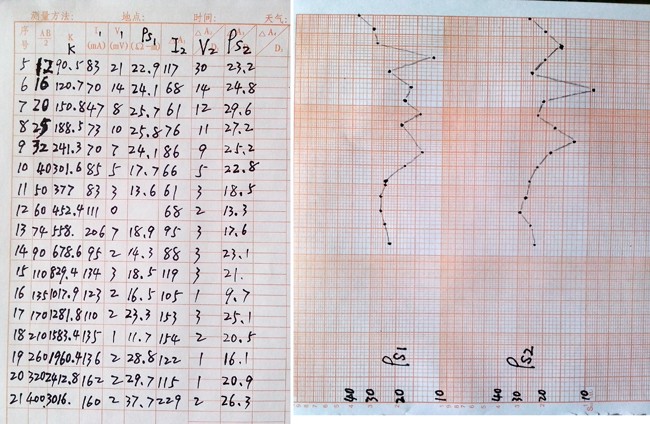 测量方法: 地点: 时间: 天气:
序号 AB/2 K I₁ V₁ ρs₁ I₂ V₂ ρs₂
K (mA) (mV) (Ω-m)
5 12 90.5 83 21 22.9 117 30 23.2
6 16 120.7 70 14 24.1 68 14 24.8
7 20 150.8 47 8 25.7 61 12 29.6
8 25 188.5 73 10 25.8 76 11 27.2
9 32 241.3 70 7 24.1 86 9 25.2
10 40 301.6 85 5 17.7 66 5 22.8
11 50 377 83 3 13.6 61 3 18.5
12 60 452.4 111 0 68 2 13.3
13 74 558. 206 7 18.9 95 3 17.6
14 90 678.6 95 2 14.3 88 3 23.1
15 110 829.4 134 3 18.5 119 3 21.
16 135 1017.9 123 2 16.5 105 1 9.7
17 170 1281.8 110 2 23.3 153 3 25.1
18 210 1583.4 135 1 11.7 154 2 20.5
19 260 1960.4 136 2 28.8 122 1 16.1
20 320 2412.8 162 2 29.7 115 1 20.9
21 400 3016. 160 2 37.7 229 2 26.3
ρs1 ρs2
40 30 20 10 40 30 20 10